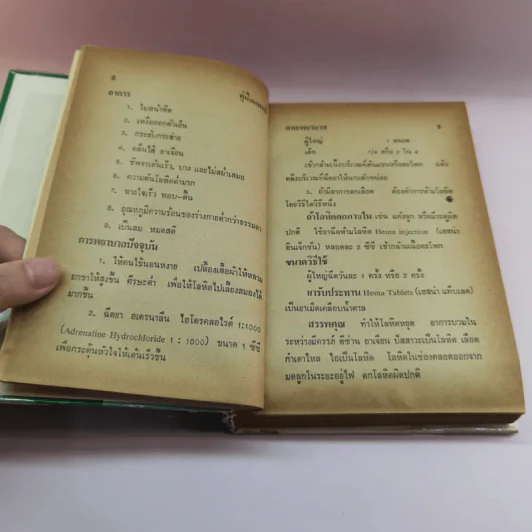 ๕
อาการ
๑. ใบหน้าซีด
๒. เหงื่อออกตัวเย็น
๓. กระสับกระส่าย
๔. คลื่นไส้ อาเจียน
๕. ชีพจรเต้นเร็ว, บาง และไม่สม่ำเสมอ
๖. ความดันโลหิตต่ำมาก
๗. หายใจเร็ว หอบ-ตื้น
๘. อุณหภูมิความร้อนของร่างกายต่ำกว่าธรรมดา
๙. เป็นลม หมดสติ
การพยาบาลปัจจุบัน
๑. ให้คนไข้นอนหงาย เปลื้องเสื้อผ้าให้หลวม
ยกขาให้สูงขึ้น ศีรษะต่ำ เพื่อให้โลหิตไปเลี้ยงสมองได้
มากขึ้น
๒. ฉีดยา อเดรนาลีน ไฮโดรคลอไรด์ ๑:๑๐๐๐
(Adrenatine Hydrochloride ๑ : ๑๐๐๐) ขนาด ๑ ซีซี
เพื่อกระตุ้นหัวใจให้เต้นเร็วขึ้น
ผู้ใหญ่ ๑ หลอด
เด็ก
เข้ากล้ามเนื้อบริเวณที่ต้นแขนหรือสะโพก แล้ว
คลึงบริเวณที่ฉีดยาให้นานสักหน่อย
๓. ถ้ามีอาการตกเลือด ต้องทำการห้ามโลหิต
โดยวิธีใดวิธีหนึ่ง
ถ้าโลหิตตกภายใน เช่น แท้งลูก หรือมีระดูผิด
ปกติ ใช้ยาฉีดห้ามโลหิต Hesna injection (เฮสน่า
อินเจ็กชั่น) หลอดละ ๒ ซีซี เข้ากล้ามเนื้อสะโพก
ขนาดวิธีใช้
ผู้ใหญ่ฉีดวันละ ๑ ครั้ง หรือ ๒ ครั้ง
ยารับประทาน Hesna Tablets (เฮสน่า แท็บเลต)
เป็นยาเม็ดเคลือบน้ำตาล
สรรพคุณ ทำให้โลหิตหยุด อาการบวมใน
ระหว่างมีครรภ์ ดีซ่าน อาเจียน ปัสสาวะเป็นโลหิต เลือด
กำเดาไหล ไอเป็นโลหิต โลหิตในช่องคลอดออกจาก
มดลูกในระยะอยู่ไฟ ตกโลหิตผิดปกติ